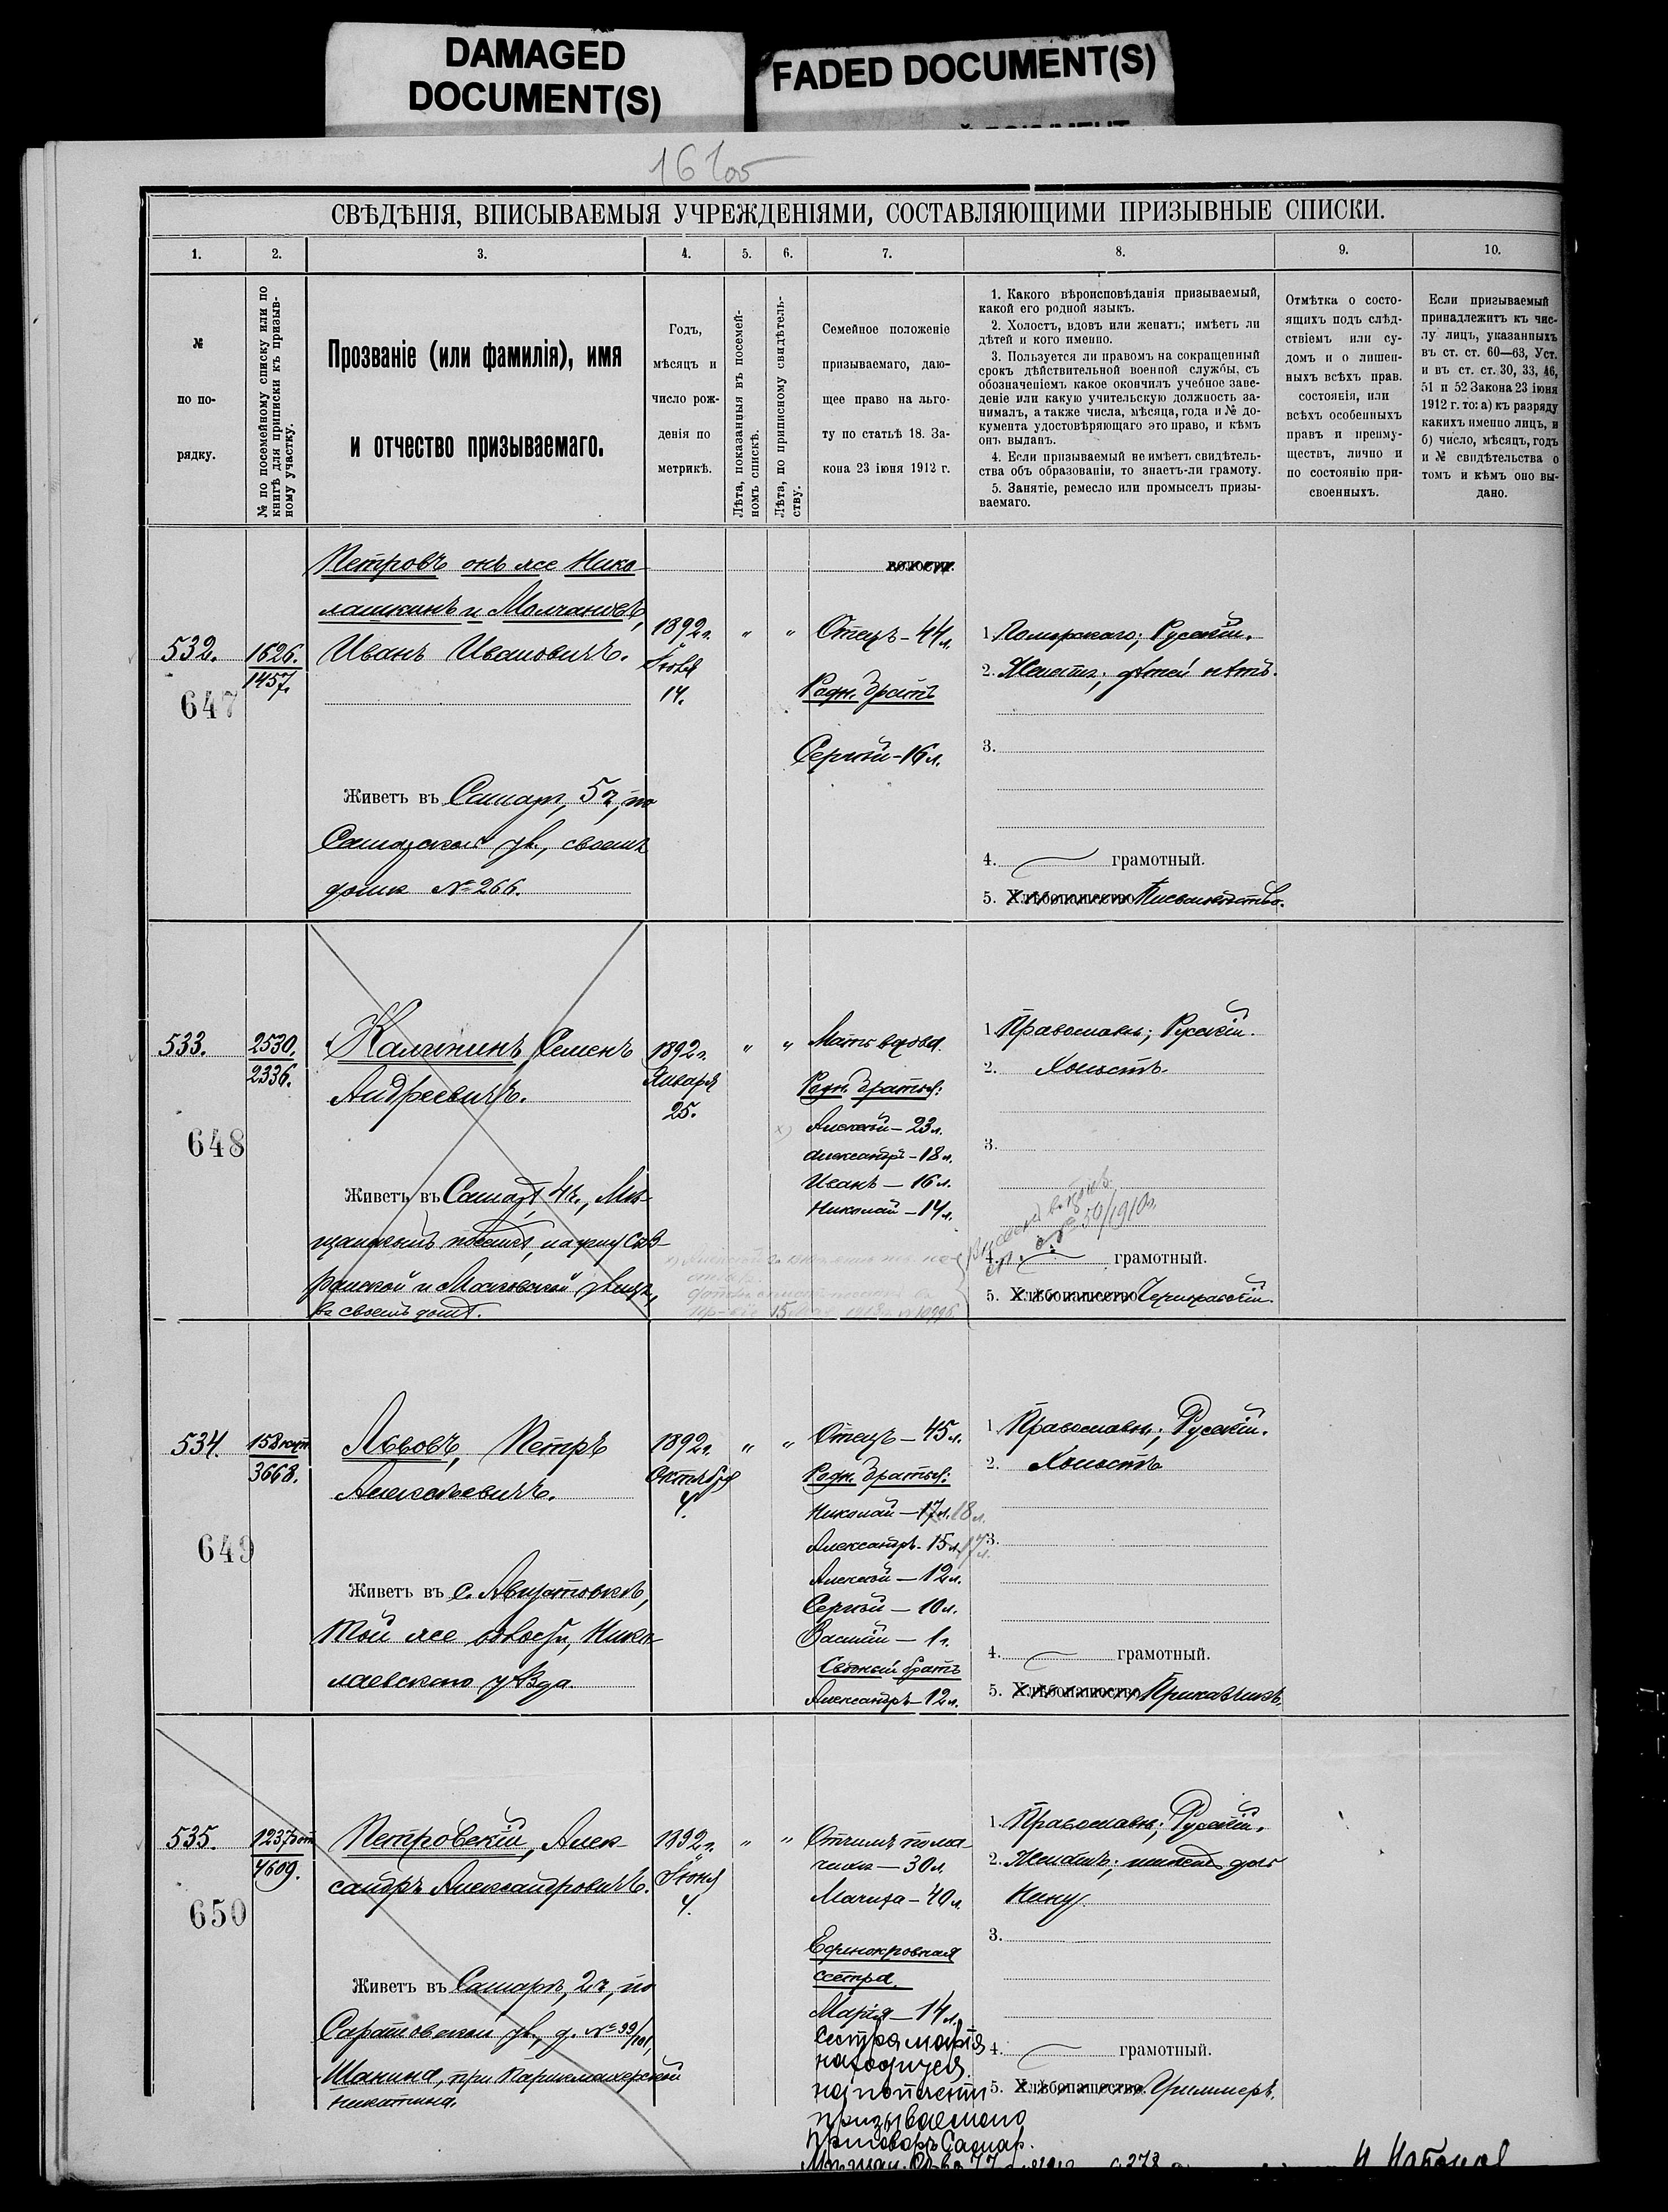 DAMAGED
DOCUMENT(S)
FADED DOCUMENT(S)
СВѢДѢНІЯ, ВПИСЫВАЕМЫЯ УЧРЕЖДЕНІЯМИ, СОСТАВЛЯЮЩИМИ ПРИЗЫВНЫЕ СПИСКИ.
1. 2. 3. 4. 5. 6. 7. 8. 9. 10.
№
по по-
рядку.
№ по посемейному списку или по
книгѣ для приписки къ призыв-
ному участку.
Прозваніе (или фамилія), имя
и отчество призываемаго.
Годъ,
мѣсяцъ и
число рож-
денія по
метрикѣ.
Лѣта, показанныя въ посемей-
номъ спискѣ.
Лѣта, по приписному свидѣтель-
ству.
Семейное положеніе
призываемаго, даю-
щее право на льго-
ту по статьѣ 18. За-
кона 23 іюня 1912 г.
1. Какого вѣроисповѣданія призываемый,
какой его родной языкъ.
2. Холостъ, вдовъ или женатъ; имѣетъ ли
дѣтей и кого именно.
3. Пользуется ли правомъ на сокращенный
срокъ дѣйствительной военной службы, съ
обозначеніемъ какое окончилъ учебное заве-
деніе или какую учительскую должность за-
нималъ, а также числа, мѣсяца, года и № до-
кумента удостовѣряющаго это право, и кѣмъ
онъ выданъ.
4. Если призываемый не имѣетъ свидѣтель-
ства объ образованіи, то знаетъ-ли грамоту.
5. Занятіе, ремесло или промыселъ призы-
ваемаго.
Отмѣтка о состо-
ящихъ подъ слѣд-
ствіемъ или су-
домъ и о лишен-
ныхъ всѣхъ прав.
состоянія, или
всѣхъ особенныхъ
правъ и преиму-
ществъ, лично и
по состоянію при-
своенныхъ.
Если призываемый
принадлежитъ къ чис-
лу лицъ, указанныхъ
въ ст. ст. 60—63, Уст.
и въ ст. ст. 30, 33, 46,
51 и 52 Закона 23 іюня
1912 г. то: а) къ разряду
какихъ именно лицъ, и
б) число, мѣсяцъ, годъ
и № свидѣтельства о
томъ и кѣмъ оно вы-
дано.
532.
647
1626.
1457.
Петровъ онъ же Нико-
лашкинъ и Молчановъ,
Иванъ Ивановичъ.
Живетъ въ Самарѣ, 5 ч, по
Самарской ул., своемъ
домѣ № 266.
1892 г.
14.
" "
Отецъ - 44 л.
Родн. братъ
Сергѣй - 16 л.
1. Поморскаго; Русскій.
2. Женатъ; дѣтей нѣтъ.
3.
4. грамотный.
5. Хлѣбопашество
533.
648
2530.
2336.
Калининъ Семенъ
Андреевичъ.
Живетъ въ Самарѣ, 4 ч., Мѣ-
щанскомъ поселкѣ, на углу Сыз-
ранской и Московской улицъ,
въ своемъ домѣ.
1892 г.
Января
25.
" "
Мать вдова.
Родн. братья:
Алексѣй - 23 л.
Александръ - 18 л.
Иванъ - 16 л.
Николай - 14 л.
1. Православн.; Русскій.
2. Холостъ.
3.
4. грамотный.
5. Хлѣбопашество Чернорабочій.
534.
649
3668.
Львовъ, Петръ
Алексѣевичъ.
Живетъ въ с. Августовкѣ,
той же волости, Нико-
лаевскаго уѣзда.
1892 г.
Октября
4.
" "
Отецъ - 45 л.
Родн. братья:
Николай - 17 л. 18 л.
Александръ - 15 л. 17 л.
Алексѣй - 12 л.
Сергѣй - 10 л.
Василій - 1 г.
Сводный братъ
Александръ - 12 л.
1. Православн.; Русскій.
2. Холостъ
3.
4. грамотный.
5. Хлѣбопашество Приказчикъ.
535.
650
4609.
Петровскій, Алек-
сандръ Александровичъ.
Живетъ въ Самарѣ, 2 ч, по
Саратовской ул., д. № 99/101,
Шанина, при Парикмахерской
Никитина.
1892 г.
Іюня
4.
" "
Отчимъ
- 30 л.
Мачиха - 40 л.
Единокровная
сестра.
Марія - 14 л.
сестра Марія
находится
на попеченіи
призываемаго
приговоръ Самар.
1. Православн.; Русскій.
2. Женатъ; имѣетъ дочь
Нину.
3.
4. грамотный.
5. Хлѣбопашество Гриммеръ.